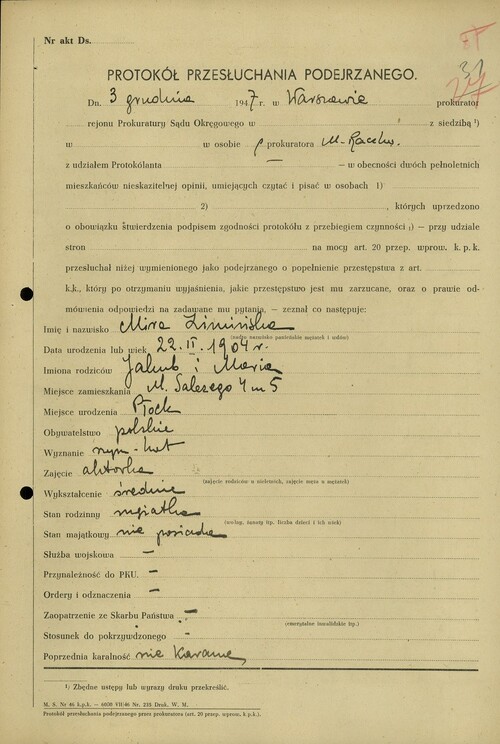 Nr akt Ds.
31
PROTOKÓŁ PRZESŁUCHANIA PODEJRZANEGO.
Dn. 3 grudnia 1947 r. w Warszawie prokurator
rejonu Prokuratury Sądu Okręgowego w z siedzibą ¹)
w w osobie prokuratora M.
z udziałem Protokólanta — – w obecności dwóch pełnoletnich
mieszkańców nieskazitelnej opinii, umiejących czytać i pisać w osobach 1)
2) , których uprzedzono
o obowiązku stwierdzenia podpisem zgodności protokółu z przebiegiem czynności ¹) – przy udziale
stron na mocy art. 20 przep. wprow. k. p. k.
przesłuchał niżej wymienionego jako podejrzanego o popełnienie przestępstwa z art.
k.k., który po otrzymaniu wyjaśnienia, jakie przestępstwo jest mu zarzucane, oraz o prawie od-
mówienia odpowiedzi na zadawane mu pytania, – zeznał co następuje:
Imię i nazwisko Mira Zimińska
(nadto nazwisko panieńskie mężatek i wdów)
Data urodzenia lub wiek 22. II. 1904 r.
Imiona rodziców Jakub i Maria
Miejsce zamieszkania M. Salezego 4 m 5
Miejsce urodzenia Płock
Obywatelstwo polskie
Wyznanie rzym.-kat
Zajęcie aktorka
(zajęcie rodziców u nieletnich, zajęcie męża u mężatek)
Wykształcenie średnie
Stan rodzinny mężatka
(wolny, żonaty itp. liczba dzieci i ich wiek)
Stan majątkowy nie posiada
Służba wojskowa —
Przynależność do PKU. —
Ordery i odznaczenia —
Zaopatrzenie ze Skarbu Państwa —
(emerytalne inwalidzkie itp.)
Stosunek do pokrzywdzonego -
Poprzednia karalność nie karana
¹) Zbędne ustępy lub wyrazy druku przekreślić.
M. S. Nr 46 k.p.k. – 6000 VII/46 Nr. 233. Druk. W. M.
Protokół przesłuchania podejrzanego przez prokuratora (art. 20 przep. wprow. k.p.k.).